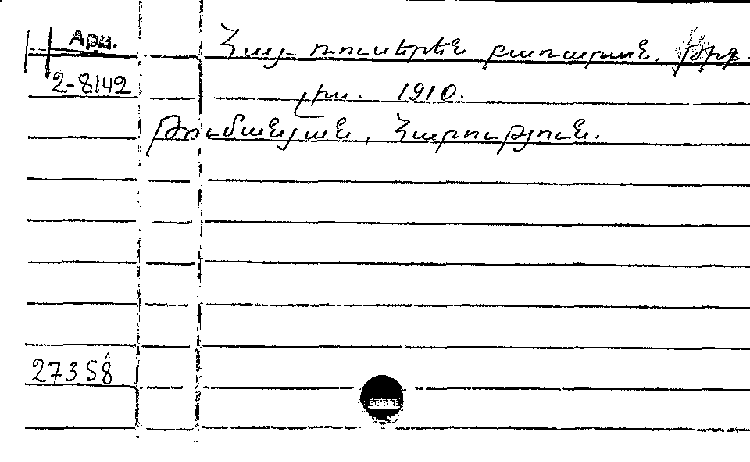 Арм.
2-8142
Հայ ռուսերեն բառարան. Թիֆ-
լիս. 1910.
Թումանյան, Հարություն.
27358